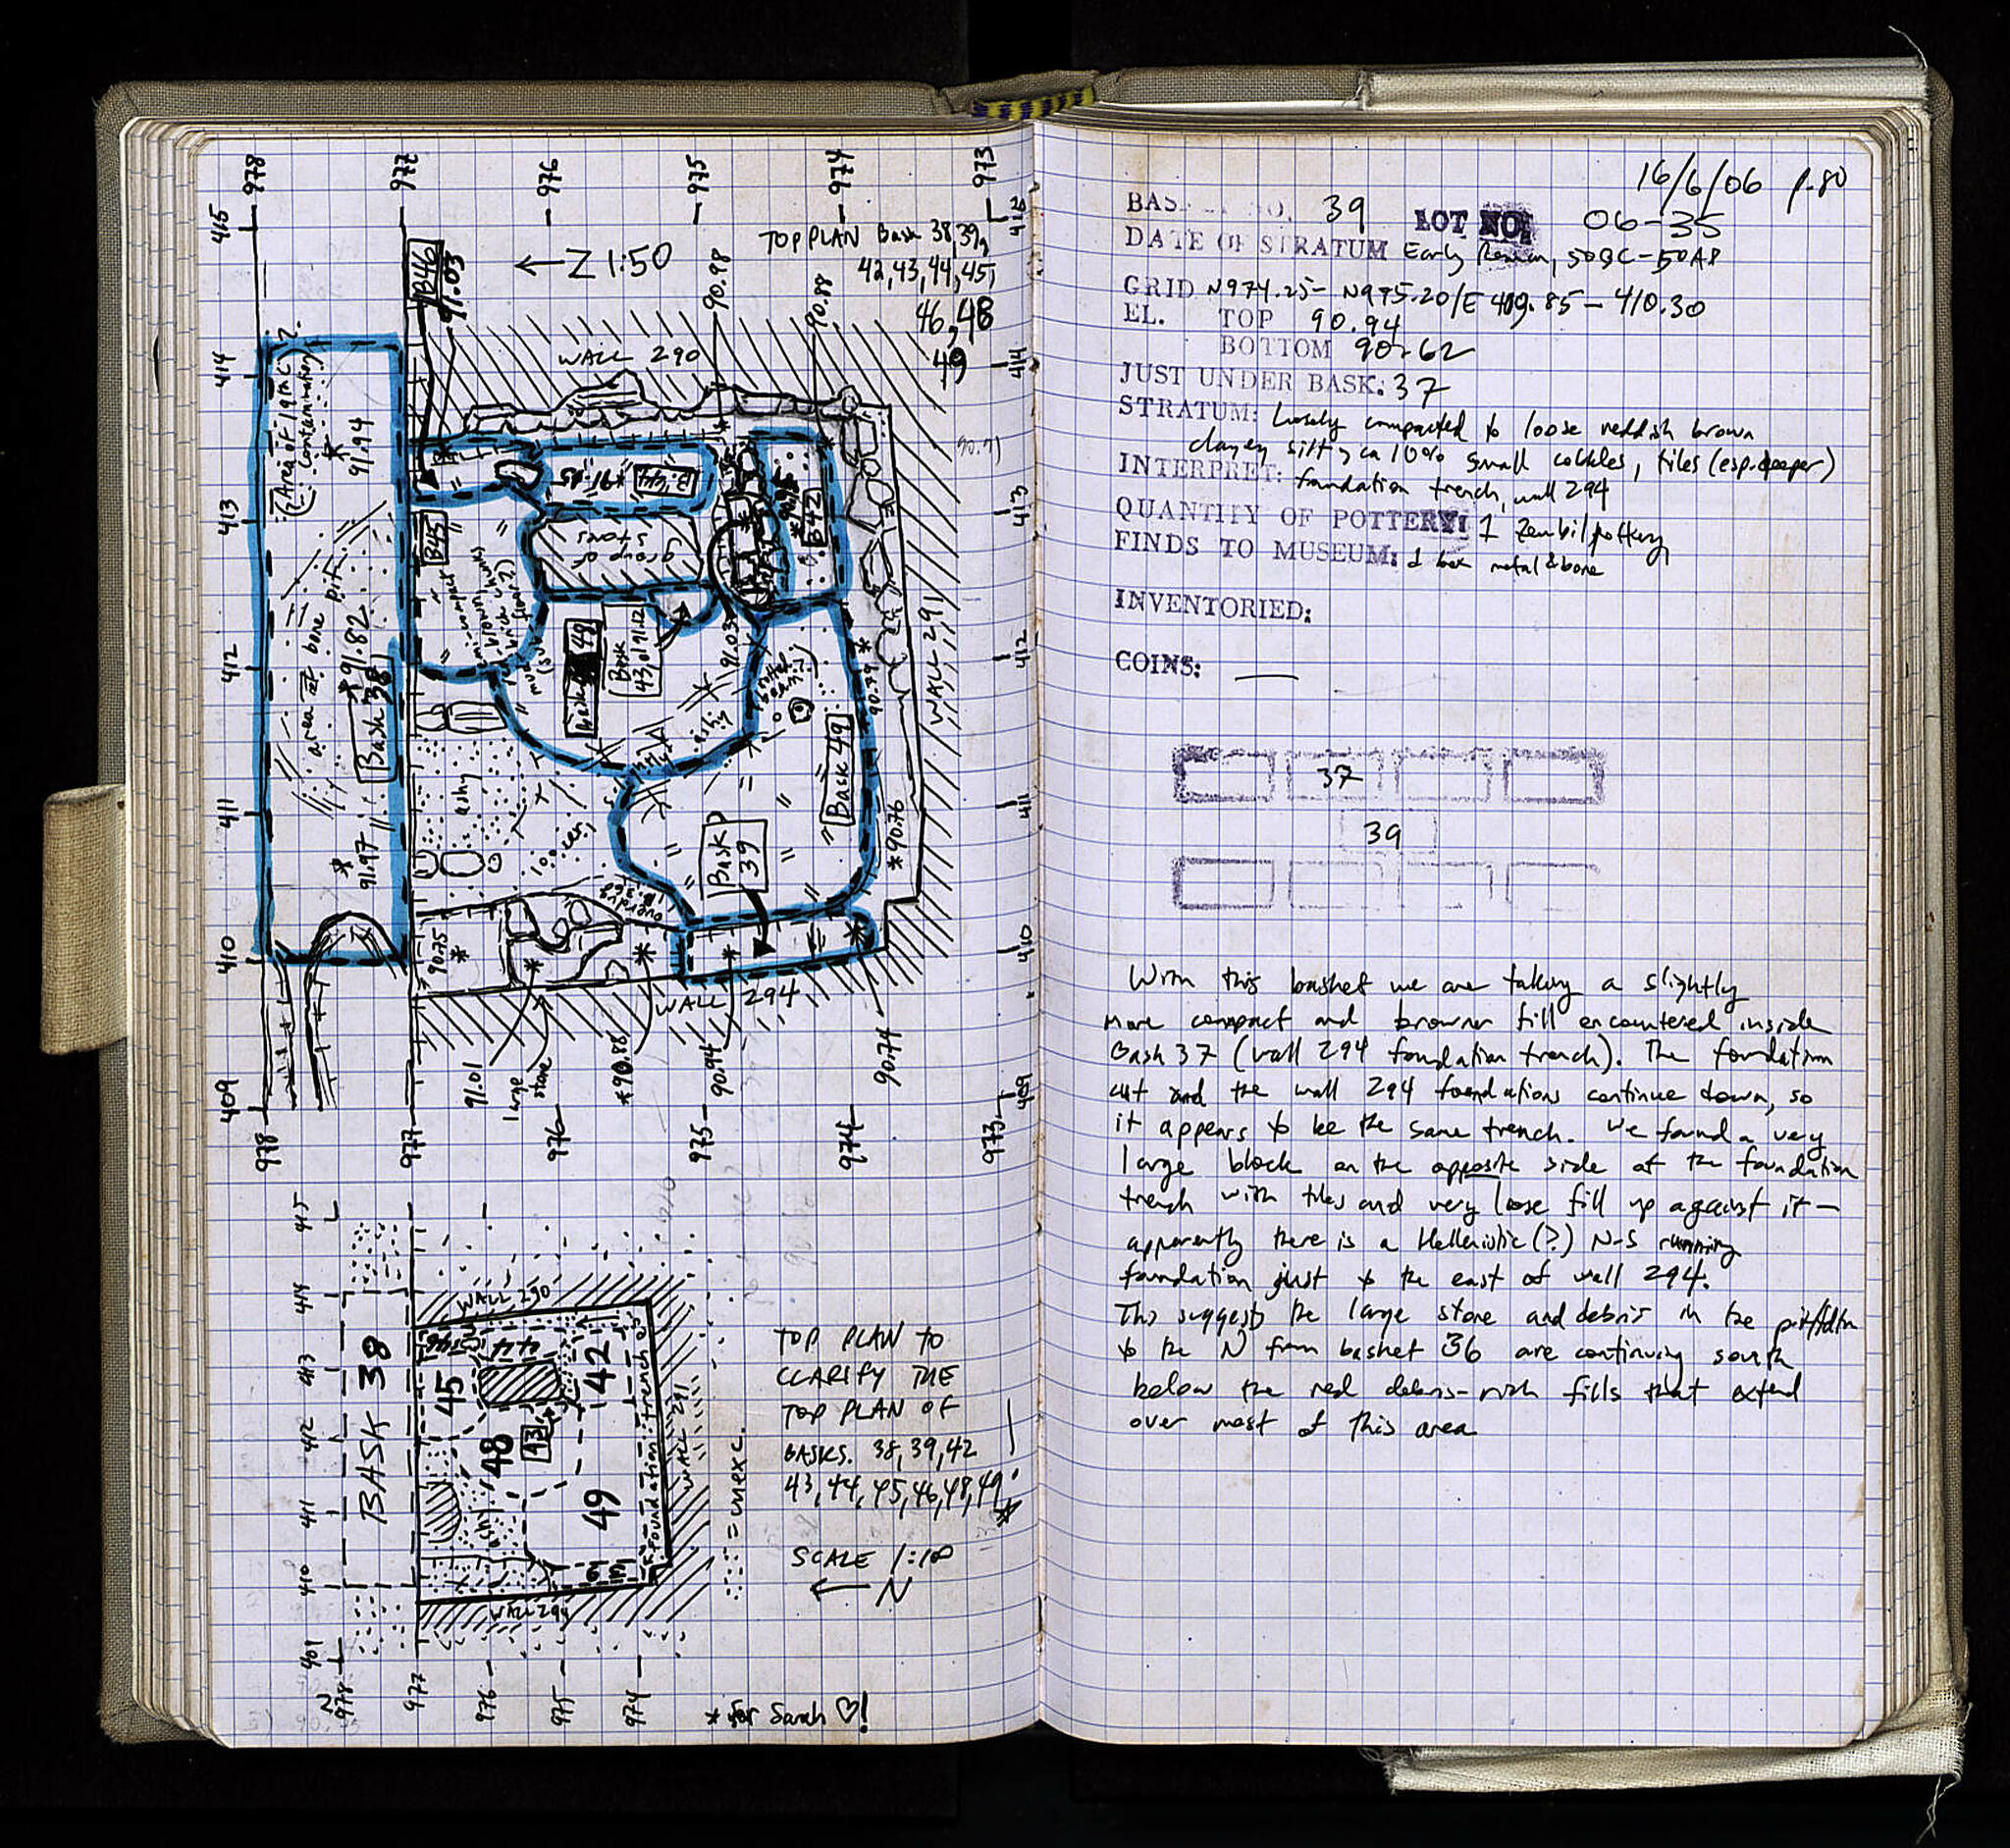 978
977
976
975
974
973
415
414
413
412
411
410
409
← Z 1:50
TOP PLAN Bask 38,39,
42,43,44,45,
46,48
49
B46
91.03
90.98
90.88
WALL 290
(Area of 19th C?
contamination)
91.94
B.44
B42
B45
group of
stones
area of bone pit
91.82
Bask 38
Bask
43, 91.12
91.03
ashy
Bask 49
90.79
WALL 291
91.97
Bask
39
90.76
90.75
WALL 294
91.01
large
stone
90.88
90.94
90.74
409
978
977
976
975
974
973
409
415
414
413
412
411
410
BASK 38
WALL 290
45
44
42
48
43
49
ashy
foundation trench
WALL 291
WALL 294
= unexc.
TOP PLAN TO
CLARIFY THE
TOP PLAN OF
BASKS. 38,39,42
43,44,45,46,48,49.
*
SCALE 1:100
← N
401
978
977
976
975
974
* for Sarah ♡!
16/6/06 p.80
BASKET NO. 39 LOT NO: 06-35
DATE OF STRATUM Early Roman, 50BC-50AD
GRID N974.25- N975.20/E 409.85 - 410.30
EL. TOP 90.94
BOTTOM 90.62
JUST UNDER BASK: 37
STRATUM: Loosely compacted to loose reddish brown
clayey silt, ca 10% small cobbles, tiles (esp. deeper)
INTERPRET: foundation trench, wall 294
QUANTITY OF POTTERY: 1 zembil pottery,
FINDS TO MUSEUM: 1 box metal & bone
INVENTORIED:
COINS: —
37
39
With this basket we are taking a slightly
more compact and browner fill encountered inside
Bask 37 (wall 294 foundation trench). The foundation
cut and the wall 294 foundations continue down, so
it appears to be the same trench. We found a very
large block on the opposite side of the foundation
trench with tiles and very loose fill up against it —
apparently there is a Hellenistic(?) N-S running
foundation just to the east of wall 294.
This suggests the large stone and debris in the
to the N from basket 36 are continuing south
below the red debris-rich fills that extend
over most of this area